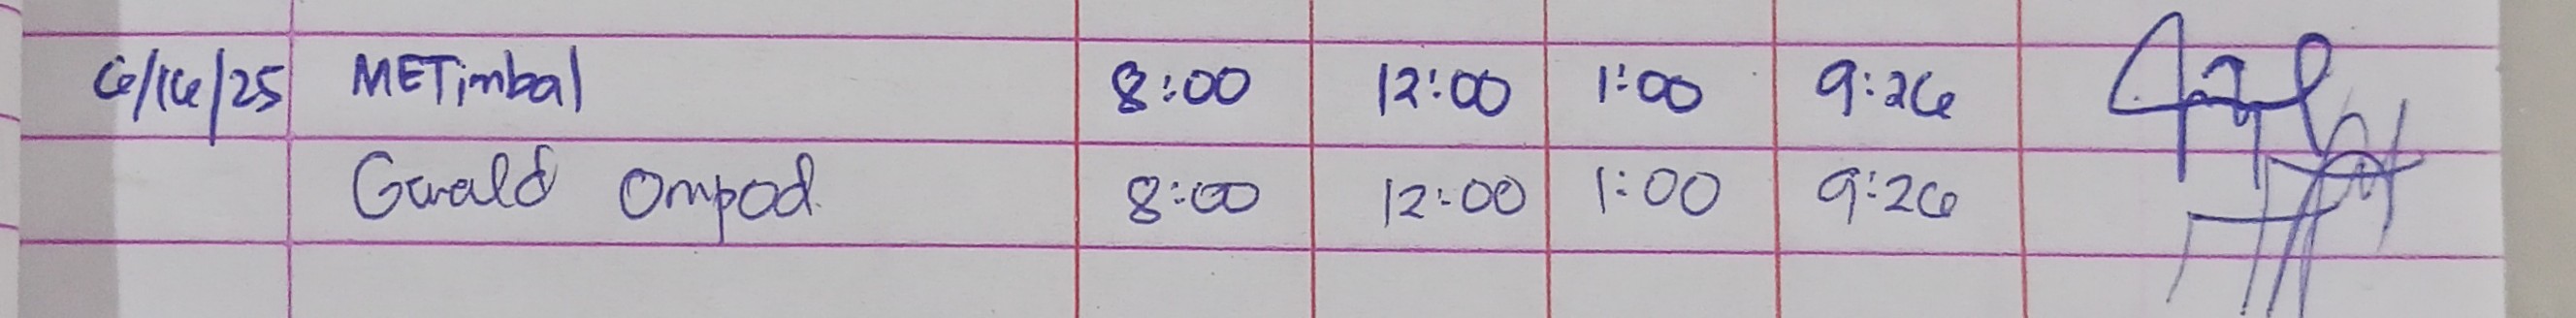 6/16/25 METimbal 8:00 12:00 1:00 9:26
Gerald Ompod 8:00 12:00 1:00 9:26